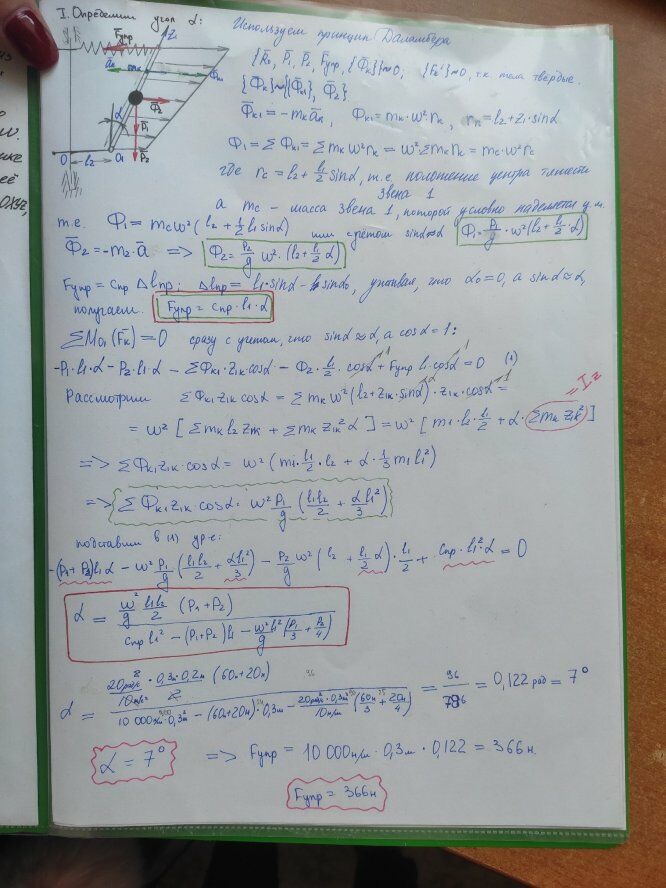 I. Определим угол α:
Используем принцип Даламбера
{R̄₀, P̄₁, P̄₂, F̄упр, {Φ̄k}}∾0; {F̄kⁱ}∾0, т.к. тела твёрдые.
{Φ̄k}∾{{Φ̄k1}, Φ̄₂}
Φ̄k1=-mk āk, Φk1=mk·ω²rk, rk=l₂+z₁·sinα
Φ₁=ΣΦk1=Σmk ω²rk=ω²Σmk rk=mc·ω²rc
где rc=l₂+l₁/2 sinα, т.е. положение центра тяжести
звена 1
а mc - масса звена 1, которой условно наделяется ц.м.
т.е. Φ₁=mc ω²(l₂+1/2 l₁ sinα) или с учётом sinα≈α Φ₁=P₁/g·ω²(l₂+l₁/2·α)
Φ̄₂=-m₂·ā => Φ₂=P₂/g ω²·(l₂+l₁/2 α)
Fупр=Cпр Δlпр; Δlпр=l₁·sinα-l₁ sinα₀, учитывая, что α₀=0, а sinα≈α,
получаем: Fупр=Cпр·l₁·α
ΣM₀₁(F̄k)=0 сразу с учётом, что sinα≈α, а cosα=1:
-P₁·l₁·α-P₂·l₁·α-ΣΦk1·z1k cosα-Φ₂·l₁/2·cosα+Fупр l₁·cosα=0 (1)
Рассмотрим ΣΦk1 z1k cosα=Σmk ω²(l₂+z1k·sinα)·z1k·cosα=
=Iz
=ω²[Σmk l₂ z1k+Σmk z1k²α]=ω²[m₁·l₂·l₁/2+α·Σmk z1k²]
=> ΣΦk1 z1k·cosα=ω²(m₁·l₁/2·l₂+α·1/3 m₁l₁²)
=> ΣΦk1 z1k cosα=ω²P₁/g(l₁l₂/2+αl₁²/3)
подставим в (1) ур-е:
-(P₁+P₂)l₁α-ω²P₁/g(l₁l₂/2+αl₁²/3)-P₂/g ω²(l₂+l₁/2 α)·l₁/2+Cпр·l₁²α=0
α=ω²/g l₁l₂/2 (P₁+P₂)/Cпр l₁²-(P₁+P₂)l₁-ω²/g l₁²(P₁/3+P₂/4)
α=20рад/с²/10м/с²·0,3м·0,2м/2(60н+20н)/10 000н/м·0,3м²-(60н+20н)·0,3м-20рад/с²·0,3м²/10м/с(60н/3+20н/4)=96/786=0,122рад=7°
α=7° => Fупр=10 000н/м·0,3м·0,122=366н
Fупр=366н